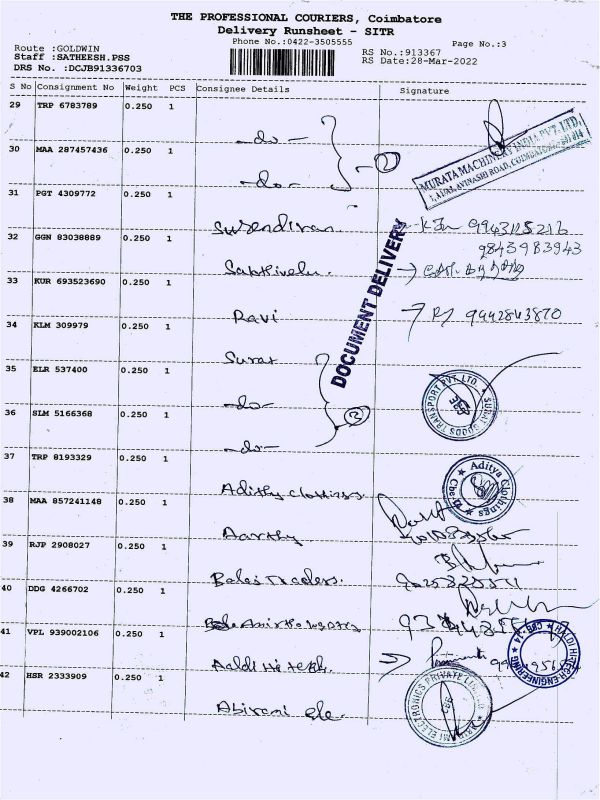 THE PROFESSIONAL COURIERS, Coimbatore
Delivery Runsheet - SITR
Phone No.:0422-3505555
Page No.:3
Route :GOLDWIN
Staff :SATHEESH.PSS
DRS No. :DCJB91336703
RS No.:913367
RS Date:28-Mar-2022
S No Consignment No Weight PCS Consignee Details Signature
29 TRP 6783789 0.250 1
-do-
MURATA MACHINERY INDIA PVT. LTD.
AVINASHI ROAD, COIMBATORE
30 MAA 287457436 0.250 1
-do-
31 PGT 4309772 0.250 1
Surendiran 9943125216
9843983943
32 GGN 83038889 0.250 1
Sakthivelu
33 KUR 693523690 0.250 1
Ravi 9442843870
DOCUMENT DELIVERY
34 KLM 309979 0.250 1
Surat
35 ELR 537400 0.250 1
-do- 3
SURAT GOODS TRANSPORT PVT. LTD. CBE
36 SLM 5166368 0.250 1
-do-
37 TRP 8193329 0.250 1
Adithy clothings
Aditya Clothings Cbe
38 MAA 857241148 0.250 1
Aarthy
39 RJP 2908027 0.250 1
Balaji Traders.
40 DDG 4266702 0.250 1
41 VPL 939002106 0.250 1
HALDI HITECH ENGINEERING CBE-14
42 HSR 2333909 0.250 1
Abirami ele.
ELECTRONICS PRIVATE LIMITED